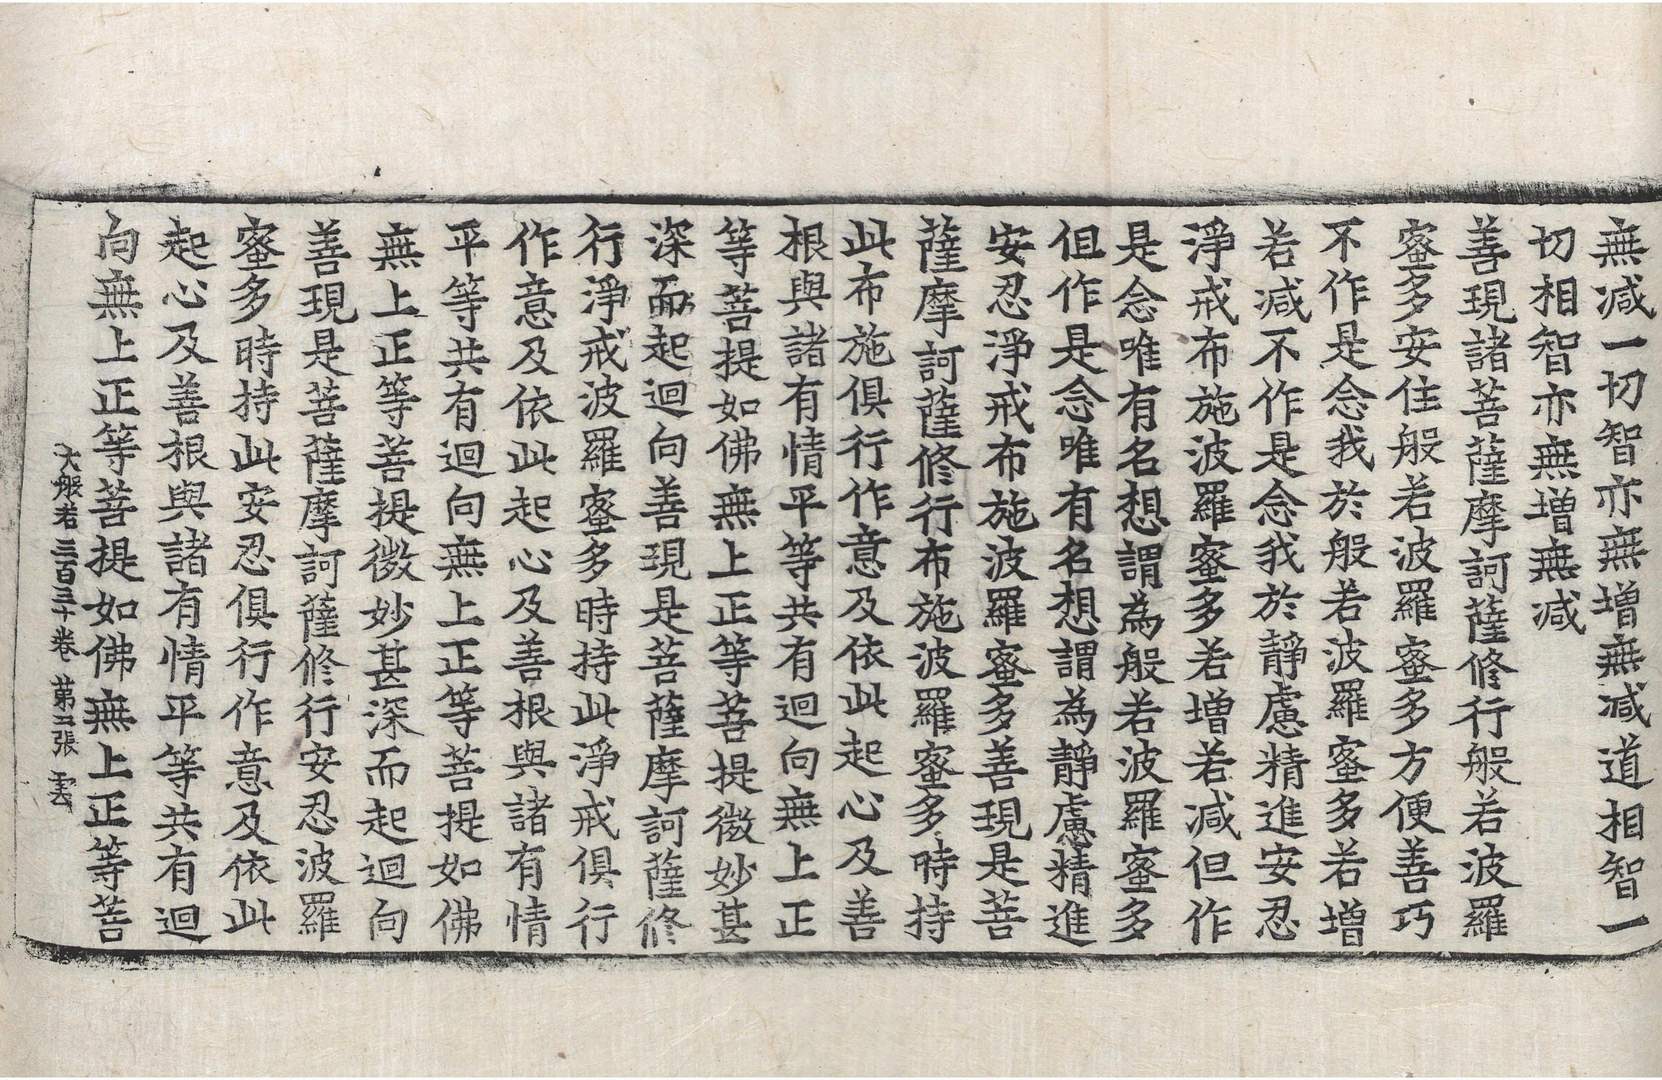 無减一切智亦無增無减道相智一
切相智亦無增無减
善現諸菩薩摩訶薩修行般若波羅
蜜多安住般若波羅蜜多方便善巧
不作是念我於般若波羅蜜多若增
若减不作是念我於靜慮精進安忍
淨戒布施波羅蜜多若增若减但作
是念唯有名想謂為般若波羅蜜多
但作是念唯有名想謂為靜慮精進
安忍淨戒布施波羅蜜多善現是菩
薩摩訶薩修行布施波羅蜜多時持
此布施俱行作意及依此起心及善
根與諸有情平等共有迴向無上正
等菩提如佛無上正等菩提微妙甚
深而起迴向善現是菩薩摩訶薩修
行淨戒波羅蜜多時持此淨戒俱行
作意及依此起心及善根與諸有情
平等共有迴向無上正等菩提如佛
無上正等菩提微妙甚深而起迴向
善現是菩薩摩訶薩修行安忍波羅
蜜多時持此安忍俱行作意及依此
起心及善根與諸有情平等共有迴
向無上正等菩提如佛無上正等菩
大般若三百三十卷 第二張 雲